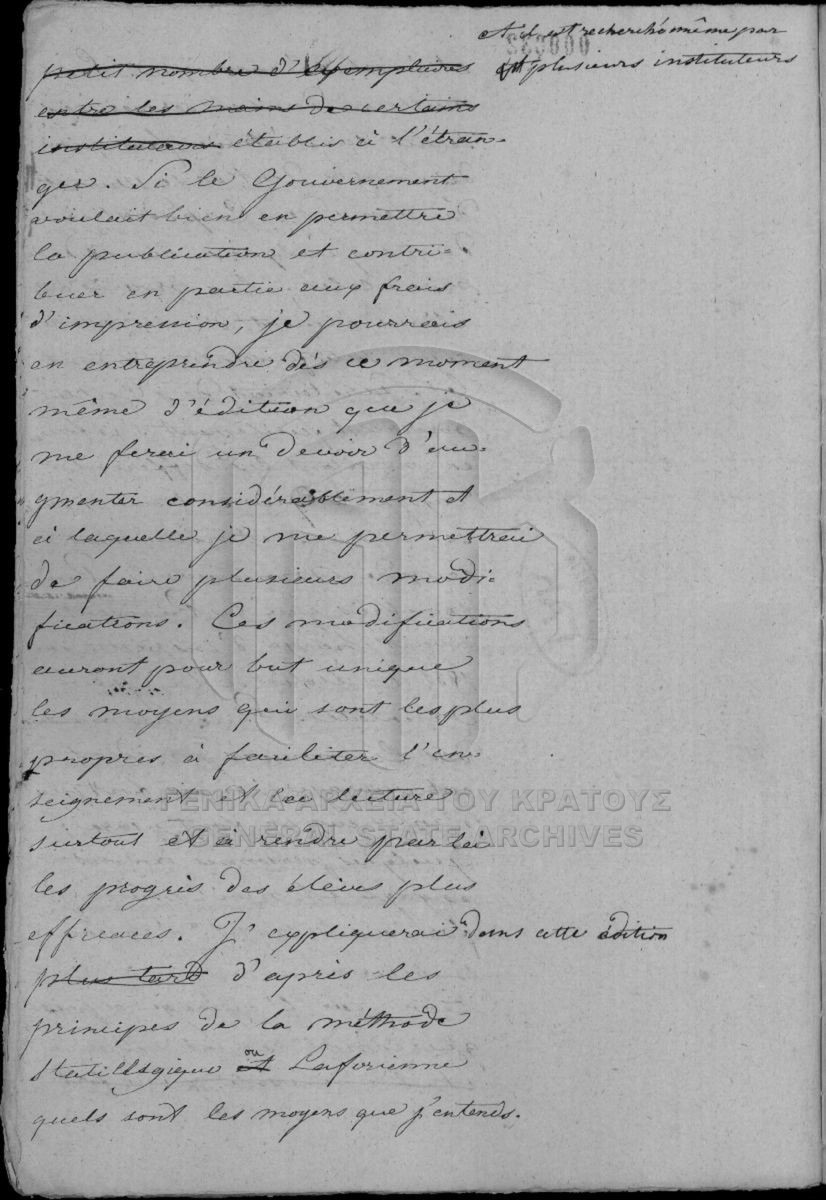 et est recherché même par
plusieurs instituteurs
petit nombre d'exemplaires
entre les mains de certains
instituteurs établis à l'étran-
ger. Si le Gouvernement
voulait bien en permettre
la publication et contri-
buer en partie aux frais
d'impression, je pourrais
en entreprendre dès ce moment
même d'édition que je
me ferai un devoir d'au-
gmenter considérablement et
à laquelle je me permettrai
de faire plusieurs modi-
fications. Ces modifications
auront pour but unique
les moyens qui sont les plus
propres à faciliter l'en-
seignement et la lecture
surtout et à rendre par là
les progrès des élèves plus
efficaces. J'expliquerai dans cette édition
plus tard d'après les
principes de la méthode
Statilégique ou et Laforienne
quels sont les moyens que j'entends.
ΓΕΝΙΚΑ ΑΡΧΕΙΑ ΤΟΥ ΚΡΑΤΟΥΣ
GENERAL STATE ARCHIVES